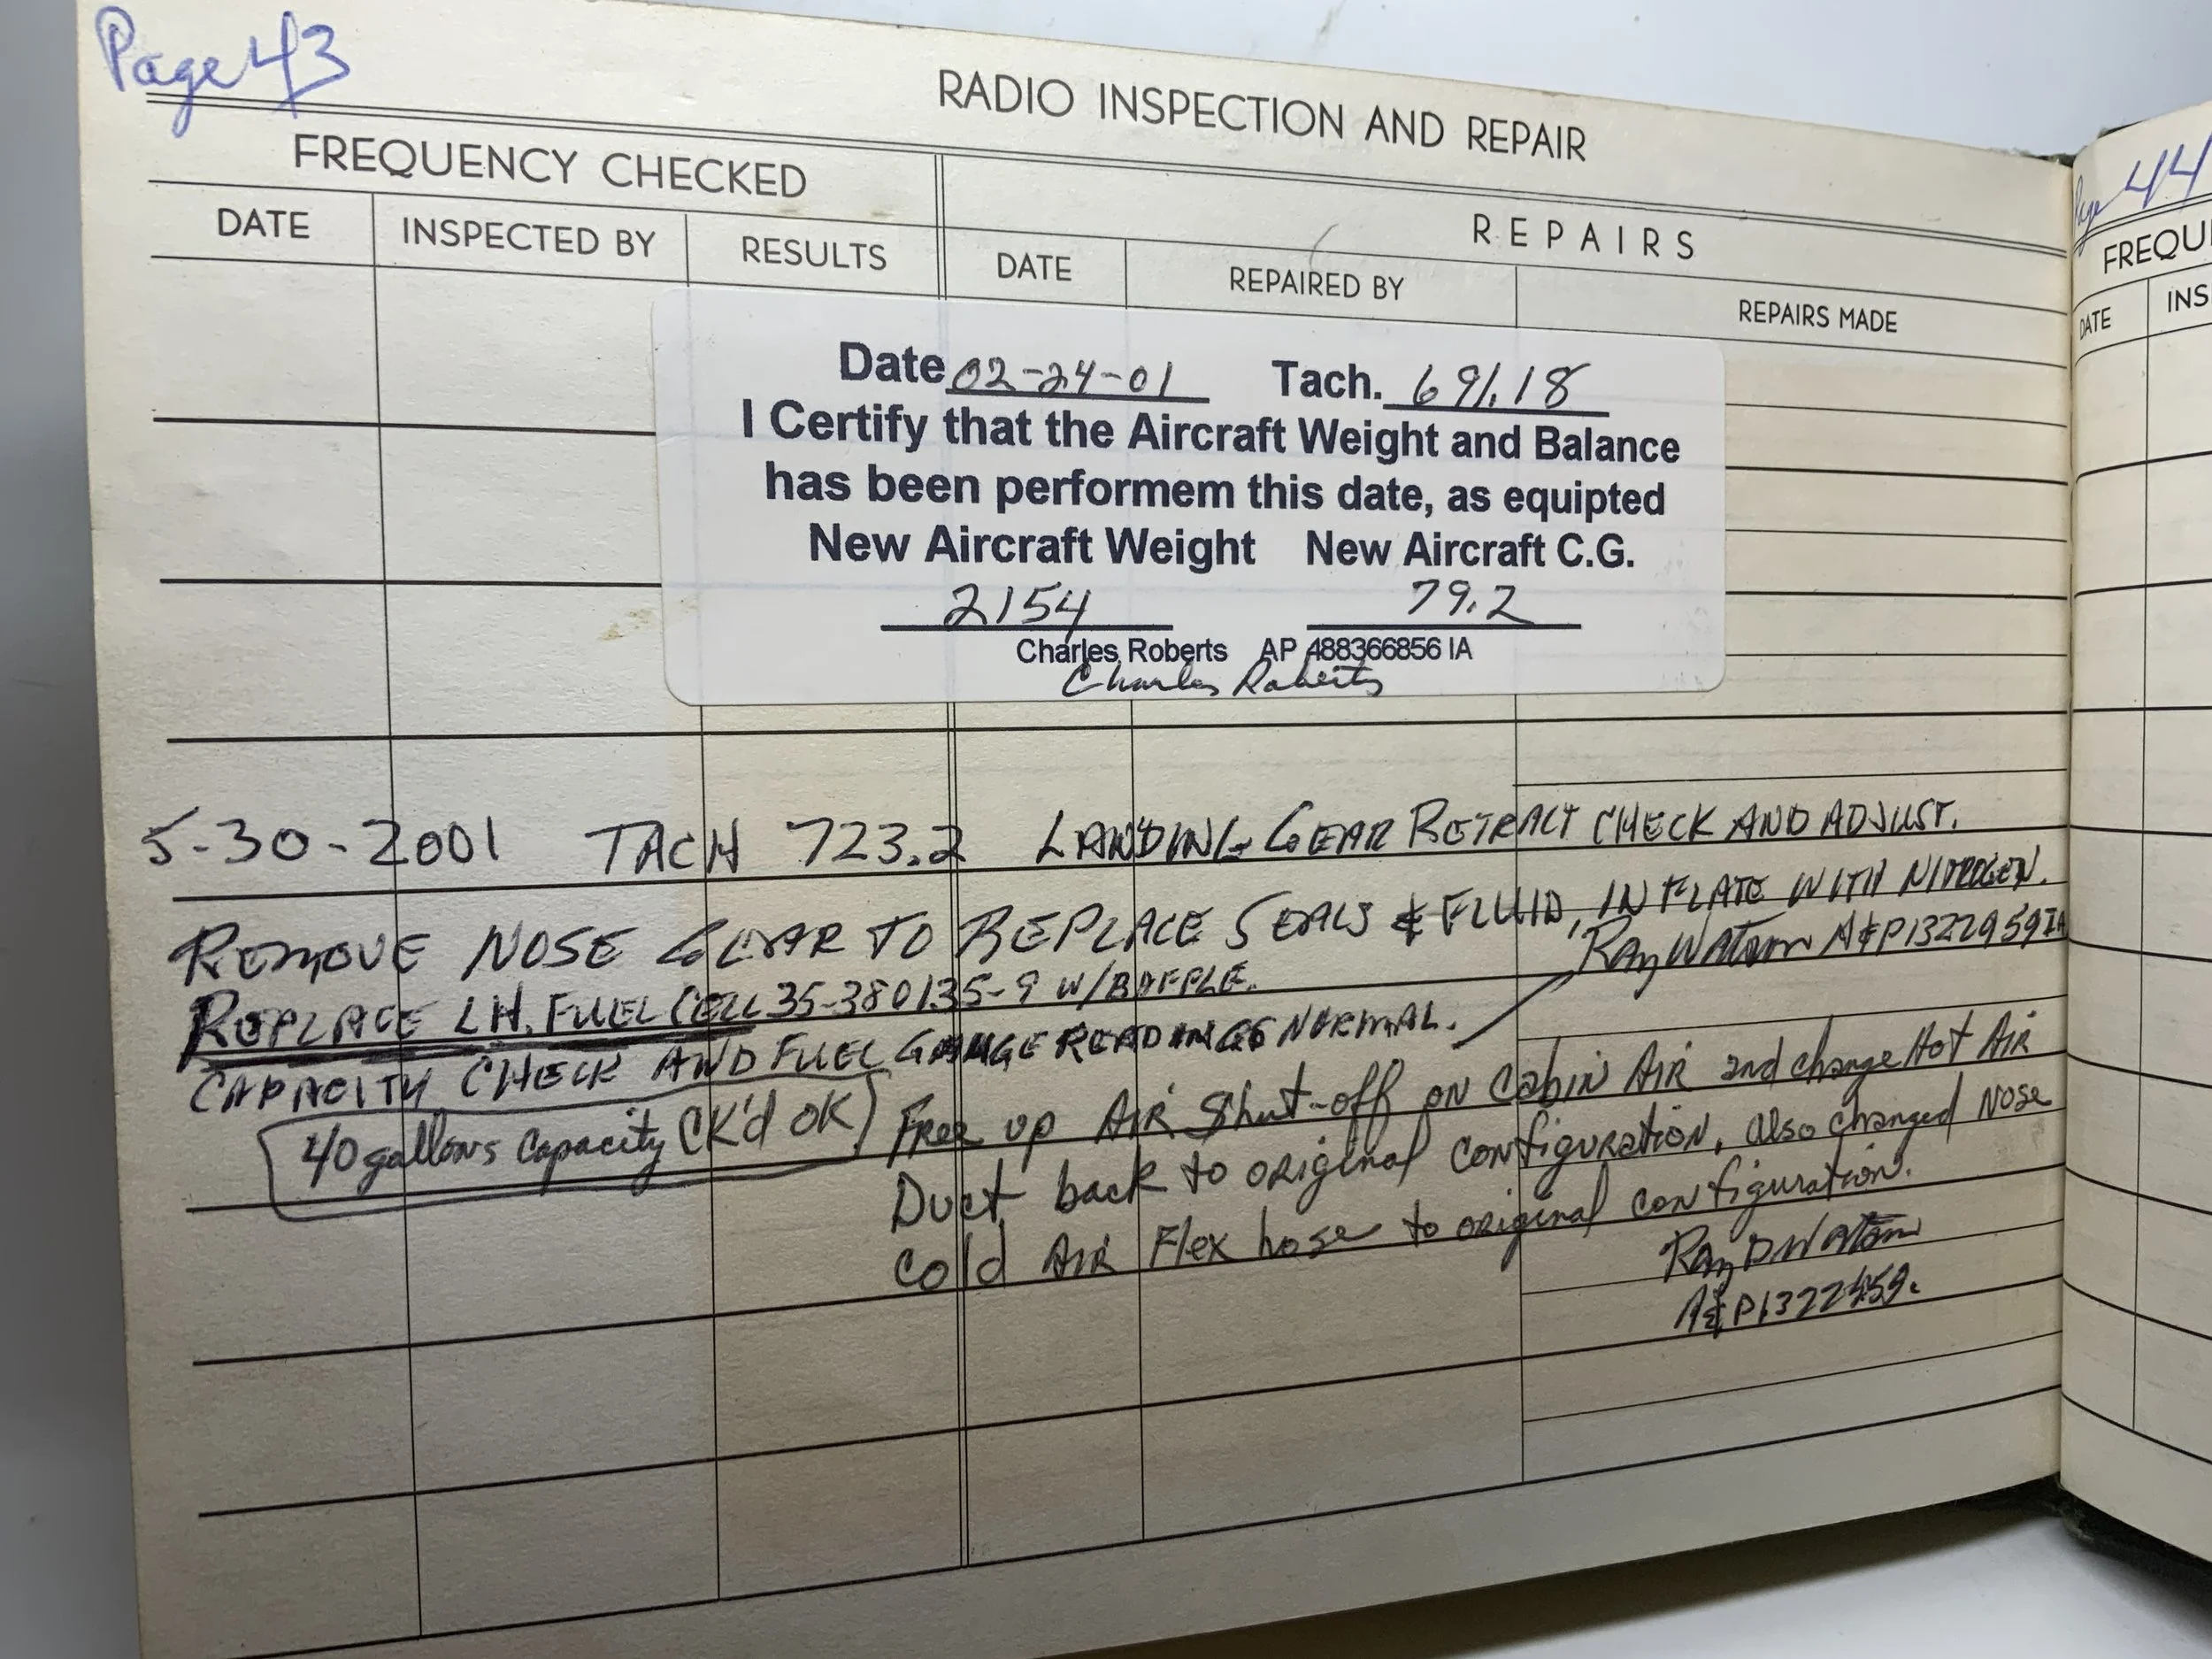 Page 43
RADIO INSPECTION AND REPAIR
FREQUENCY CHECKED
REPAIRS
DATE INSPECTED BY RESULTS DATE REPAIRED BY REPAIRS MADE
Date 02-24-01 Tach. 691.18
I Certify that the Aircraft Weight and Balance
has been performem this date, as equipted
New Aircraft Weight New Aircraft C.G.
2154 79.2
Charles Roberts AP 488366856 IA
Charles Roberts
5-30-2001 TACH 723.2 LANDING GEAR RETRACT CHECK AND ADJUST.
REMOVE NOSE GEAR TO REPLACE SEALS & FLUID, INFLATE WITH NITROGEN.
Ray Watson A&P 1322959 IA
REPLACE LH. FUEL CELL 35-380135-9 W/BAFFLE.
CAPACITY CHECK AND FUEL GAUGE READINGS NORMAL.
40 gallons capacity (CK'd OK)
Free up AIR Shut-off ON Cabin AIR and change Hot AIR
Duct back to original configuration, also changed Nose
Cold AIR Flex hose to original configuration.
Ray D Watson
A&P
Page 44
FREQU
DATE INS